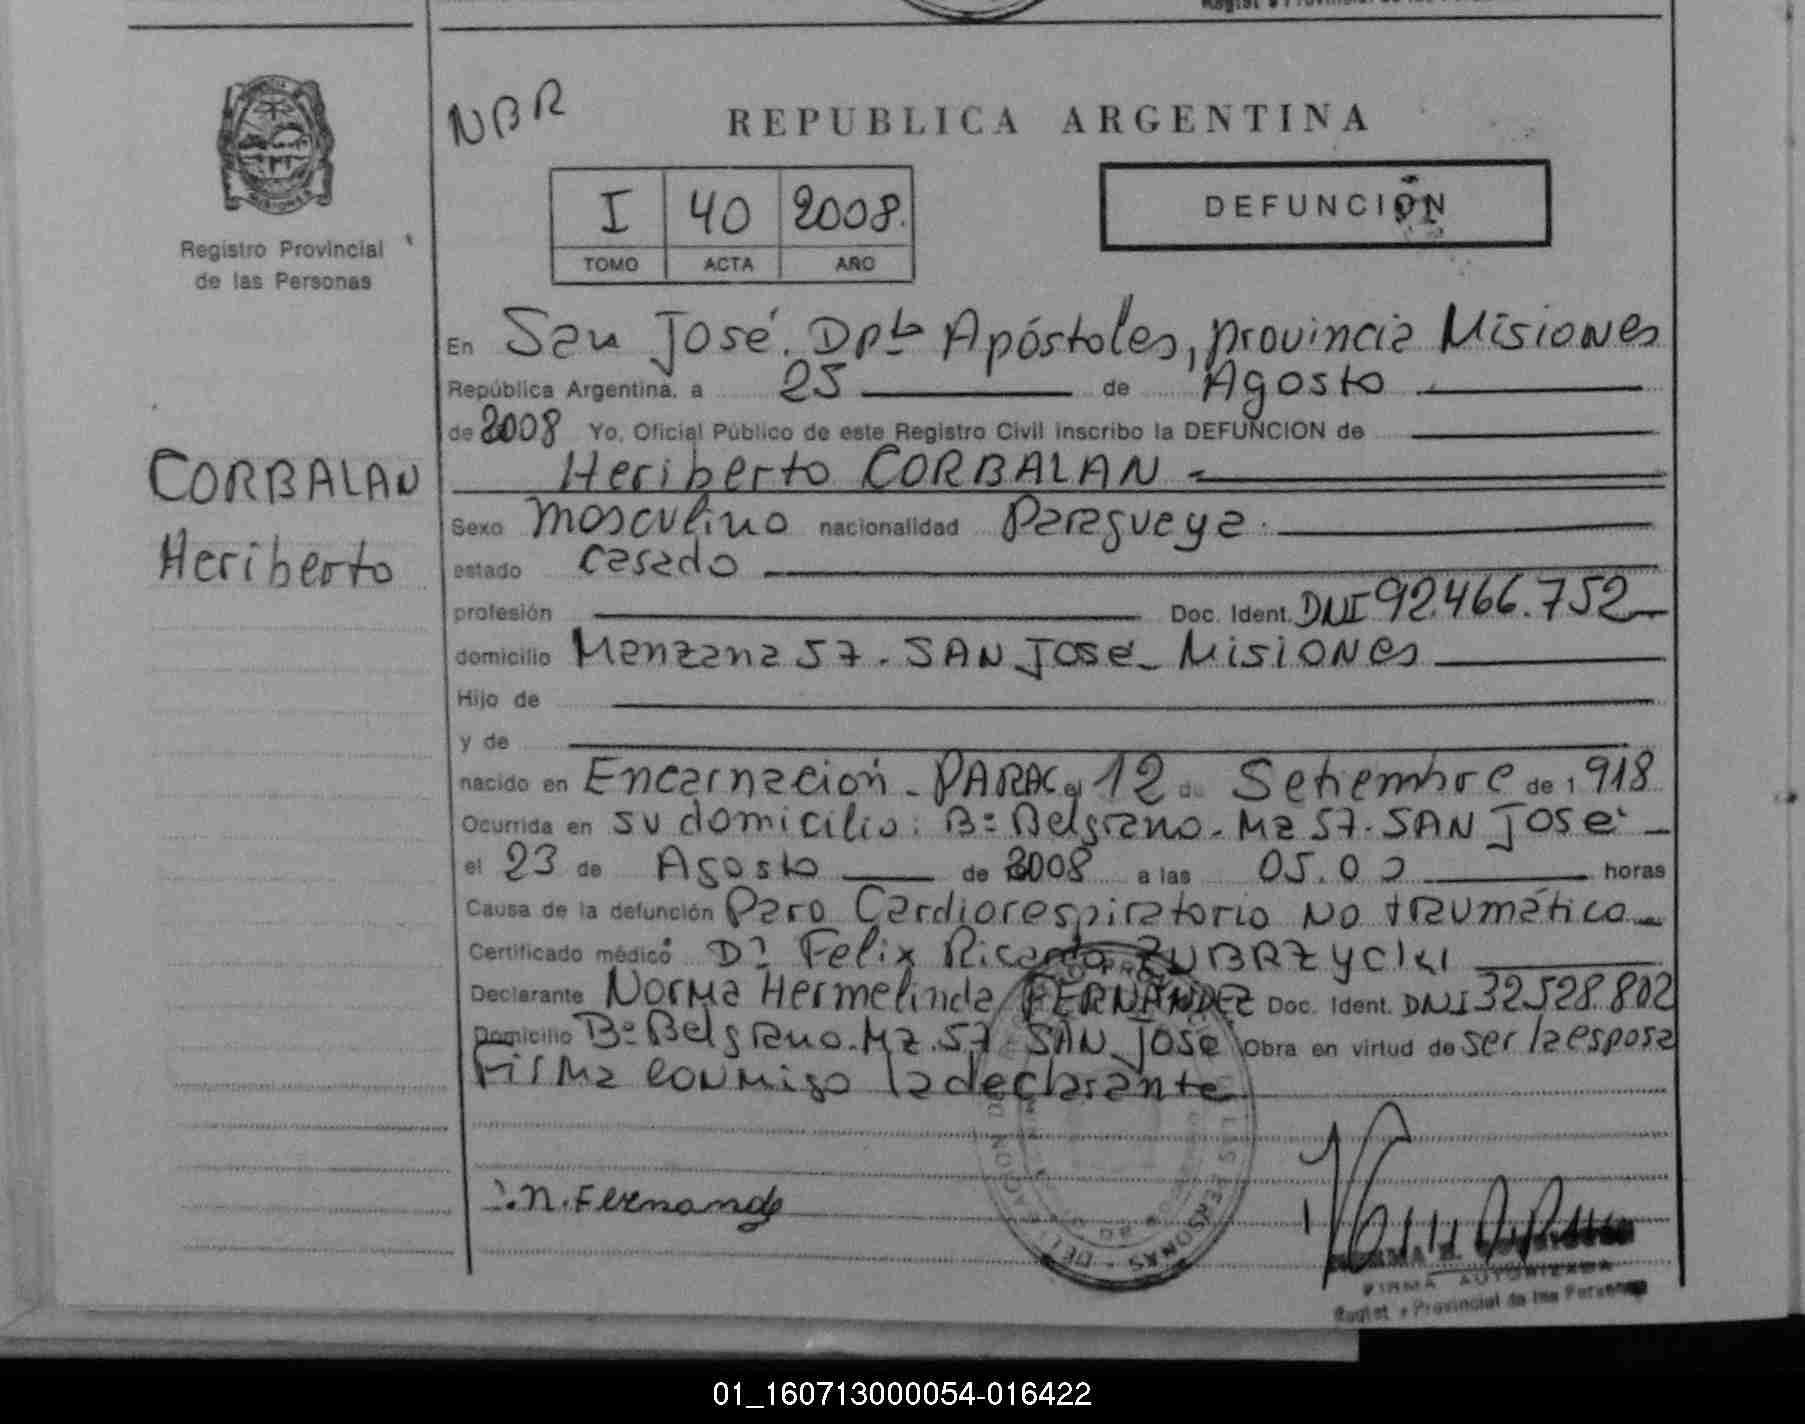 NBR
REPUBLICA ARGENTINA
I 40 2008.
TOMO ACTA AÑO
DEFUNCION
Registro Provincial
de las Personas
CORBALAN
Heriberto
En San José. Dpto Apóstoles, provincia Misiones
República Argentina, a 25 de Agosto
de 2008 Yo, Oficial Público de este Registro Civil inscribo la DEFUNCION de
Heriberto CORBALAN
Sexo masculino nacionalidad Paraguaya.
estado casado
profesión Doc. Ident. DNI 92.466.752
domicilio Manzana 57. SAN JOSÉ - Misiones
Hijo de
y de
nacido en Encarnación - PARAG el 12 de Setiembre de 1918
Ocurrida en su domicilio: Bº Belgrano. Mz 57. SAN JOSÉ
el 23 de Agosto de 2008 a las 05.00 horas
Causa de la defunción Paro Cardiorespiratorio No traumático
Certificado médico Dr. Felix Ricardo ZUBRZYCKI
Declarante Norma Hermelinda FERNANDEZ Doc. Ident. DNI 32.528.802
Domicilio Bº Belgrano. Mz. 57 SAN JOSE Obra en virtud de ser la esposa
Firma conmigo la declarante
N. Fernande
FIRMA AUTORIZADA
Regist Provincial de las Personas
01_160713000054-016422